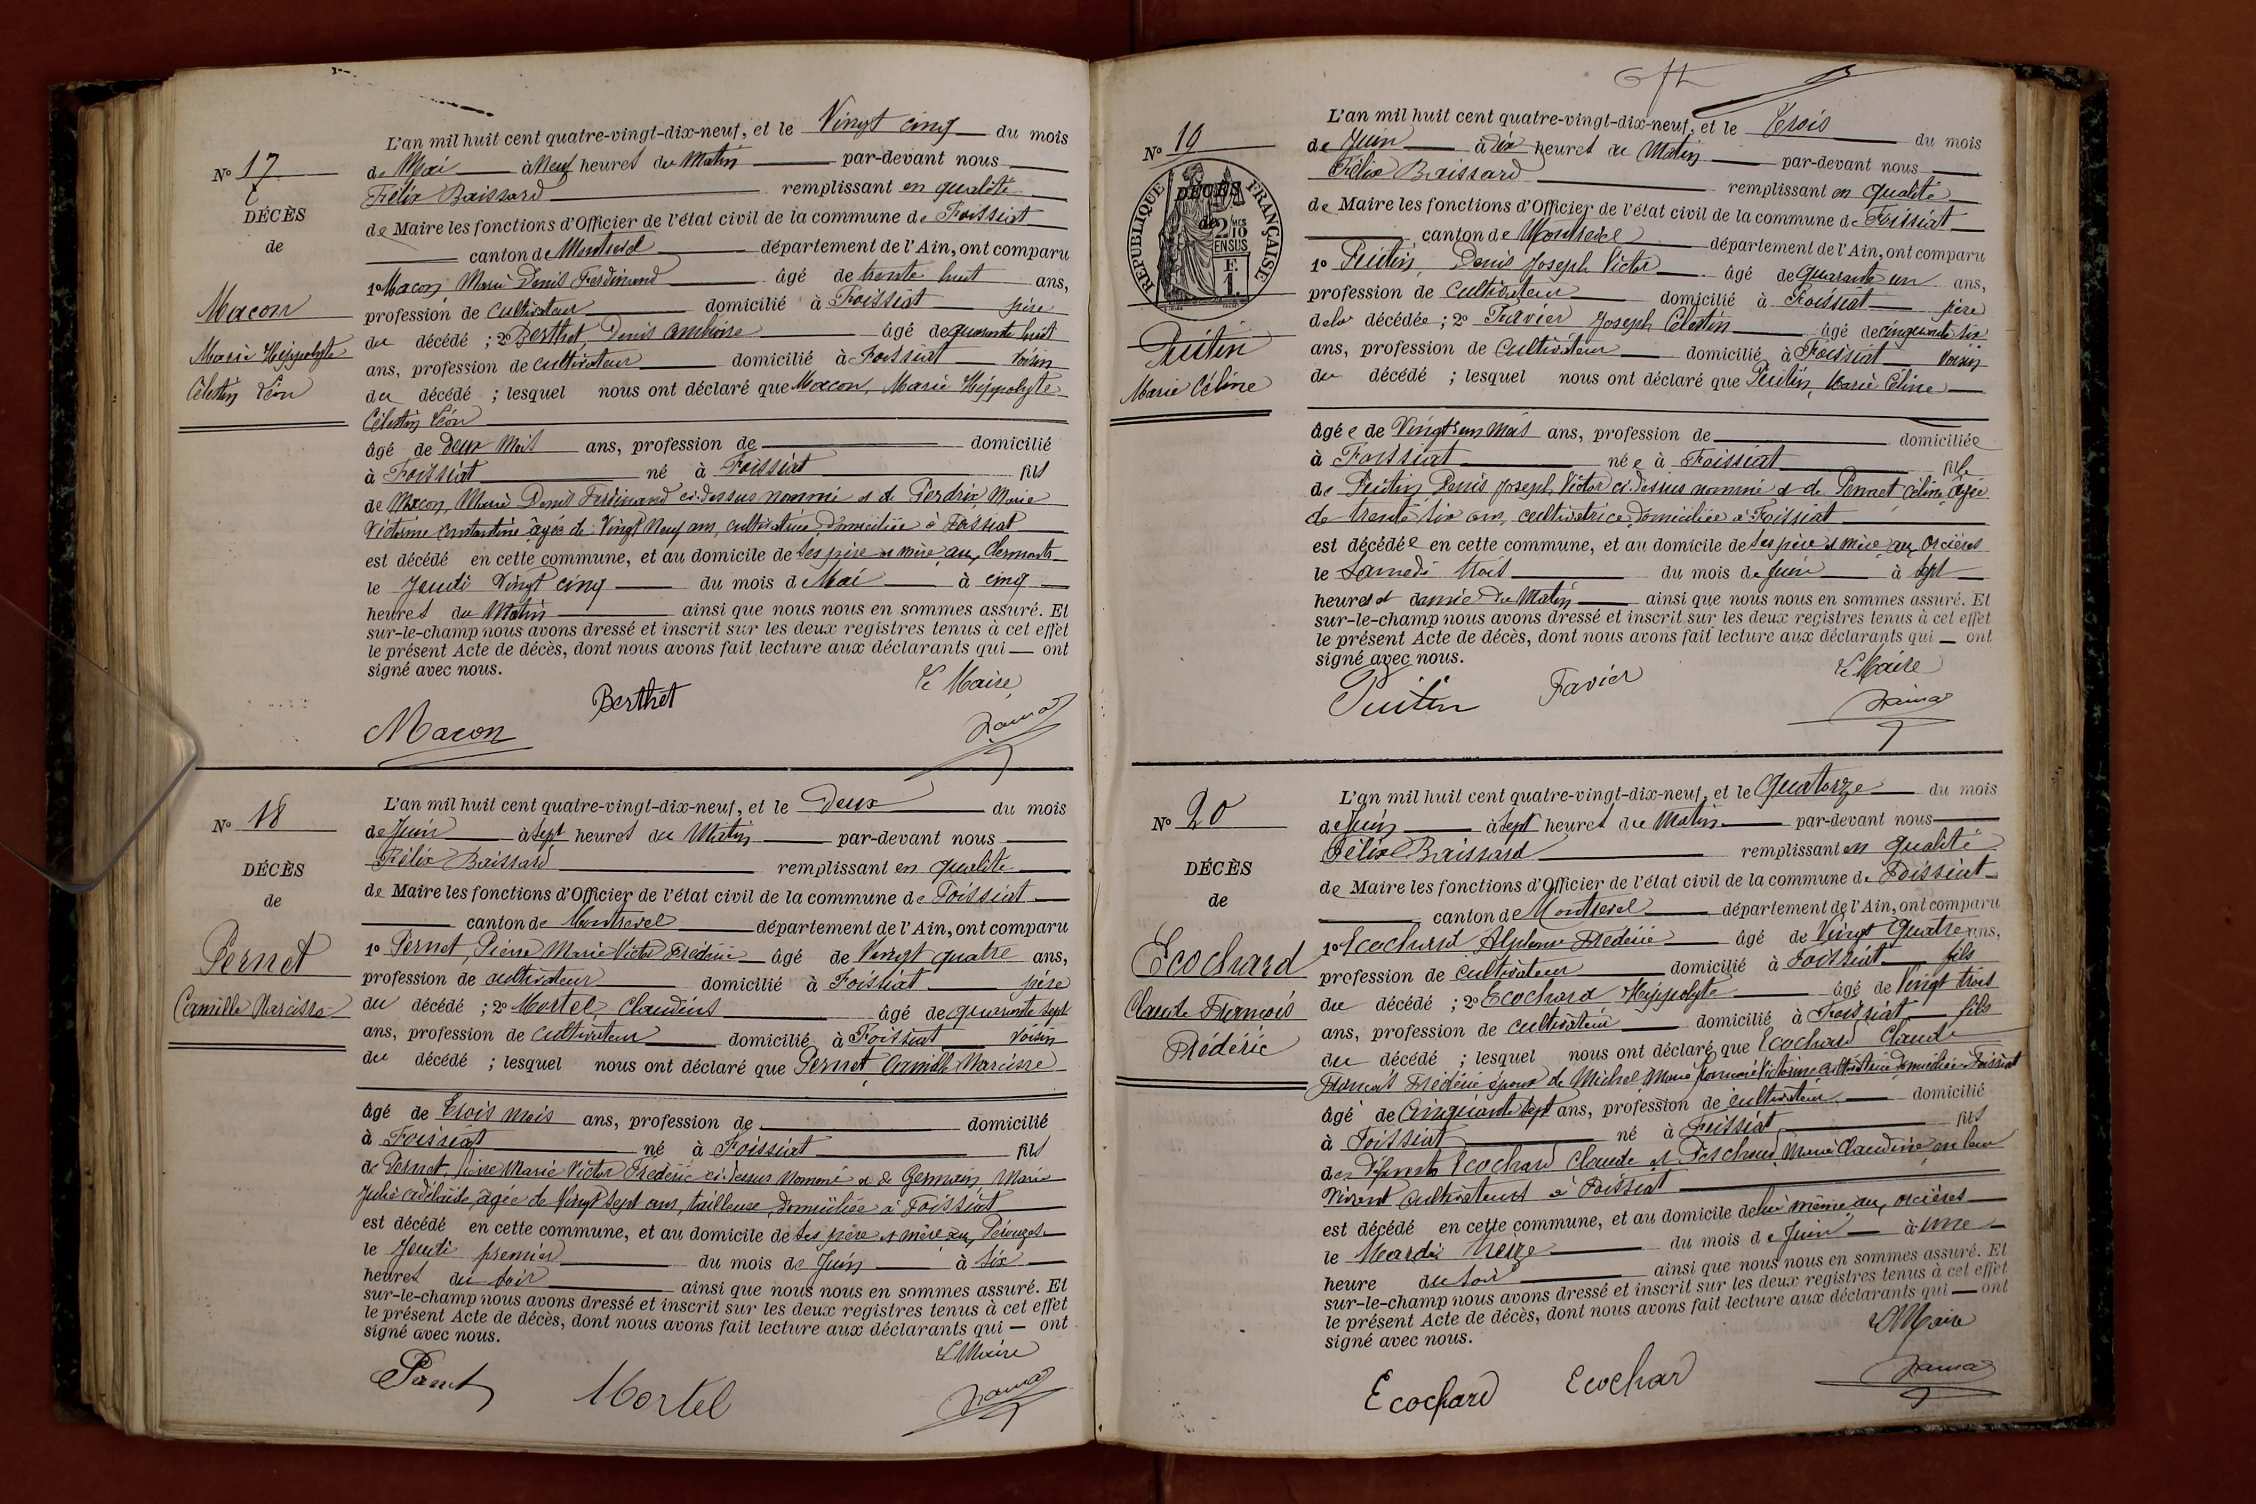 L'an mil huit cent quatre-vingt-dix-neuf, et le Vingt cinq du mois
No 17
de Mai à Neuf heures du Matin par-devant nous
Félix Baissard remplissant en qualité
DÉCÈS
de Maire les fonctions d'Officier de l'état civil de la commune de Foissiat
de
canton de Montrevel département de l'Ain, ont comparu
1o Macon Marie Denis Ferdinand âgé de trente huit ans,
Macon
profession de cultivateur domicilié à Foissiat père
du décédé ; 2o Berthet, Denis Ambroise âgé de quarante huit
Marie Hippolyte
ans, profession de cultivateur domicilié à Foissiat voisin
Célestin Léon
du décédé ; lesquel nous ont déclaré que Macon, Marie Hippolyte
Célestin Léon
âgé de Deux Mois ans, profession de domicilié
à Foissiat né à Foissiat fils
de Macon, Marie Denis Ferdinand ci-dessus nommé et de Perdrix Marie
Victorine Constantine âgée de Vingt Neuf ans, cultivatrice, domiciliée à Foissiat
est décédé en cette commune, et au domicile de ses père et mère aux Clermonts
le Jeudi Vingt cinq du mois de Mai à cinq
heures du Matin ainsi que nous nous en sommes assuré. Et
sur-le-champ nous avons dressé et inscrit sur les deux registres tenus à cet effet
le présent Acte de décès, dont nous avons fait lecture aux déclarants qui ont
signé avec nous.
Le Maire
Berthet
Macon
L'an mil huit cent quatre-vingt-dix-neuf, et le Deux du mois
No 18
de Juin à Sept heures du Matin par-devant nous
Félix Baissard remplissant en qualité
DÉCÈS
de Maire les fonctions d'Officier de l'état civil de la commune de Foissiat
de
canton de Montrevel département de l'Ain, ont comparu
Pernet
1o Pernet, Pierre Marie Victor Frédéric âgé de Vingt quatre ans,
profession de cultivateur domicilié à Foissiat père
Camille Narcisse
du décédé ; 2o Mortel, Claudius âgé de quarante sept
ans, profession de cultivateur domicilié à Foissiat voisin
du décédé ; lesquel nous ont déclaré que Pernet Camille Narcisse
âgé de Trois mois ans, profession de domicilié
à Foissiat né à Foissiat fils
de Pernet, Pierre Marie Victor Frédéric ci-dessus nommé et de Germain, Marie
Julie Adélaïde, âgée de Vingt sept ans, tailleuse, domiciliée à Foissiat
est décédé en cette commune, et au domicile de ses père et mère aux Pérouzes
le Jeudi premier du mois de Juin à six
heures du soir ainsi que nous nous en sommes assuré. Et
sur-le-champ nous avons dressé et inscrit sur les deux registres tenus à cet effet
le présent Acte de décès, dont nous avons fait lecture aux déclarants qui ont
signé avec nous.
Le Maire
Mortel
L'an mil huit cent quatre-vingt-dix-neuf, et le Trois du mois
No 19
de Juin à dix heures du Matin par-devant nous
Félix Baissard remplissant en qualité
RÉPUBLIQUE FRANÇAISE
DÉCÈS
de
2/10 EN SUS
F. 1.
de Maire les fonctions d'Officier de l'état civil de la commune de Foissiat
canton de Montrevel département de l'Ain, ont comparu
1o Puitin, Denis Joseph Victor âgé de quarante un ans,
profession de cultivateur domicilié à Foissiat père
dela décédée ; 2o Favier Joseph Célestin âgé de cinquante six
Puitin
ans, profession de cultivateur domicilié à Foissiat voisin
Marie Céline
du décédé ; lesquel nous ont déclaré que Puitin, Marie Céline
âgée de Vingt un Mois ans, profession de domiciliée
à Foissiat née à Foissiat fille
de Puitin Denis Joseph Victor ci-dessus nommé et de Pernet Céline âgée
de trente six ans, cultivatrice domiciliée à Foissiat
est décédée en cette commune, et au domicile de ses père et mère aux Orcières
le Samedi trois du mois de Juin à sept
heures et demie du Matin ainsi que nous nous en sommes assuré. Et
sur-le-champ nous avons dressé et inscrit sur les deux registres tenus à cet effet
le présent Acte de décès, dont nous avons fait lecture aux déclarants qui ont
signé avec nous.
Le Maire
Puitin Favier
L'an mil huit cent quatre-vingt-dix-neuf, et le Quatorze du mois
No 20
de Juin à Sept heures du Matin par-devant nous
Félix Baissard remplissant en qualité
DÉCÈS
de Maire les fonctions d'Officier de l'état civil de la commune de Foissiat
de
canton de Montrevel département de l'Ain, ont comparu
Ecochard
1o Ecochard Alphonse Frédéric âgé de Vingt Quatre ans,
profession de cultivateur domicilié à Foissiat fils
Claude François
du décédé ; 2o Ecochard Hippolyte âgé de Vingt trois
ans, profession de cultivateur domicilié à Foissiat fils
Frédéric
du décédé ; lesquel nous ont déclaré que Ecochard Claude
François Frédéric époux de Michel Marie Victorine cultivatrice domiciliée à Foissiat
âgé de Cinquante sept ans, profession de cultivateur domicilié
à Foissiat né à Foissiat fils
des défunts Ecochard Claude et Marie Claudine, en leur
vivant cultivateurs à Foissiat
est décédé en cette commune, et au domicile de lui même aux Orcières
le Mardi treize du mois de Juin à une
heure du soir ainsi que nous nous en sommes assuré. Et
sur-le-champ nous avons dressé et inscrit sur les deux registres tenus à cet effet
le présent Acte de décès, dont nous avons fait lecture aux déclarants qui ont
signé avec nous.
Le Maire
Ecochard Ecochar